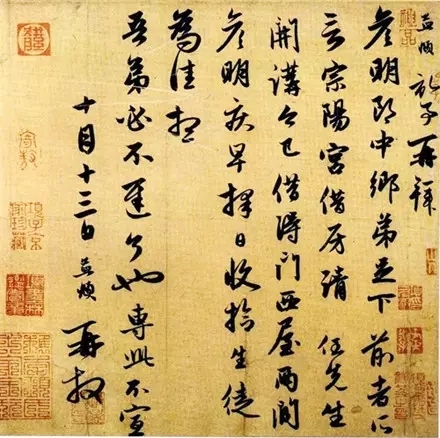 孟頫再拜
彥明郎中鄉弟足下前者所
言宗陽宮借房請任先生
開講今已借得門西屋兩間
彥明疾早擇日收拾生徒
為佳想
吾弟必不遲了也專此不宣
十月十三日孟頫再拜